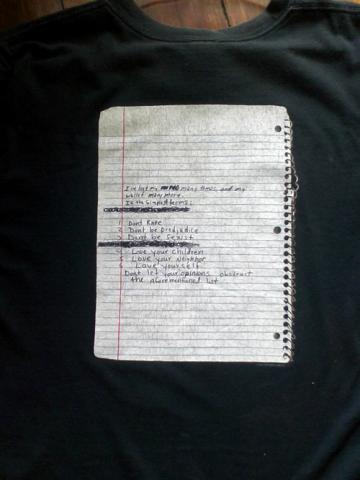 I've lost my mind many times, and my
wallet many more.
In the simplest terms:
1 Don't Rape
2 Dont be Predjudice
3 Dont be Sexist
4 Love your children
5 Love your Neighbor
6 Love yourself
Dont let your opinions obstruct
the aforementioned list